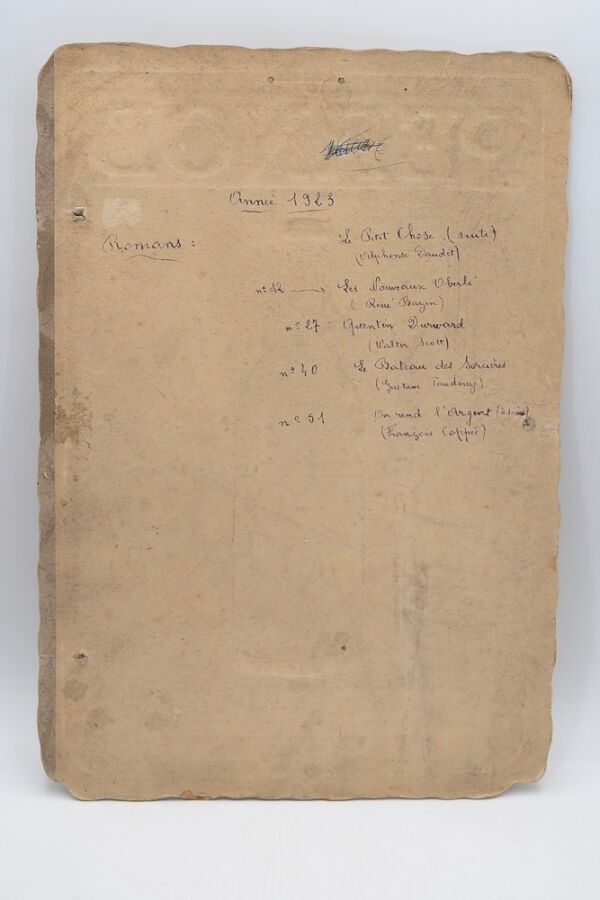 Année 1923
Romans : Le Petit Chose (suite)
(Alphonse Daudet)
n° 12 → Les Nouveaux Oberlé
(René Bazin)
n° 27 Quentin Durward
(Walter Scott)
n° 40 Le Bateau des Sorcières
(Gustave Toudouze)
n° 51 On rend l'Argent
(François Coppée)